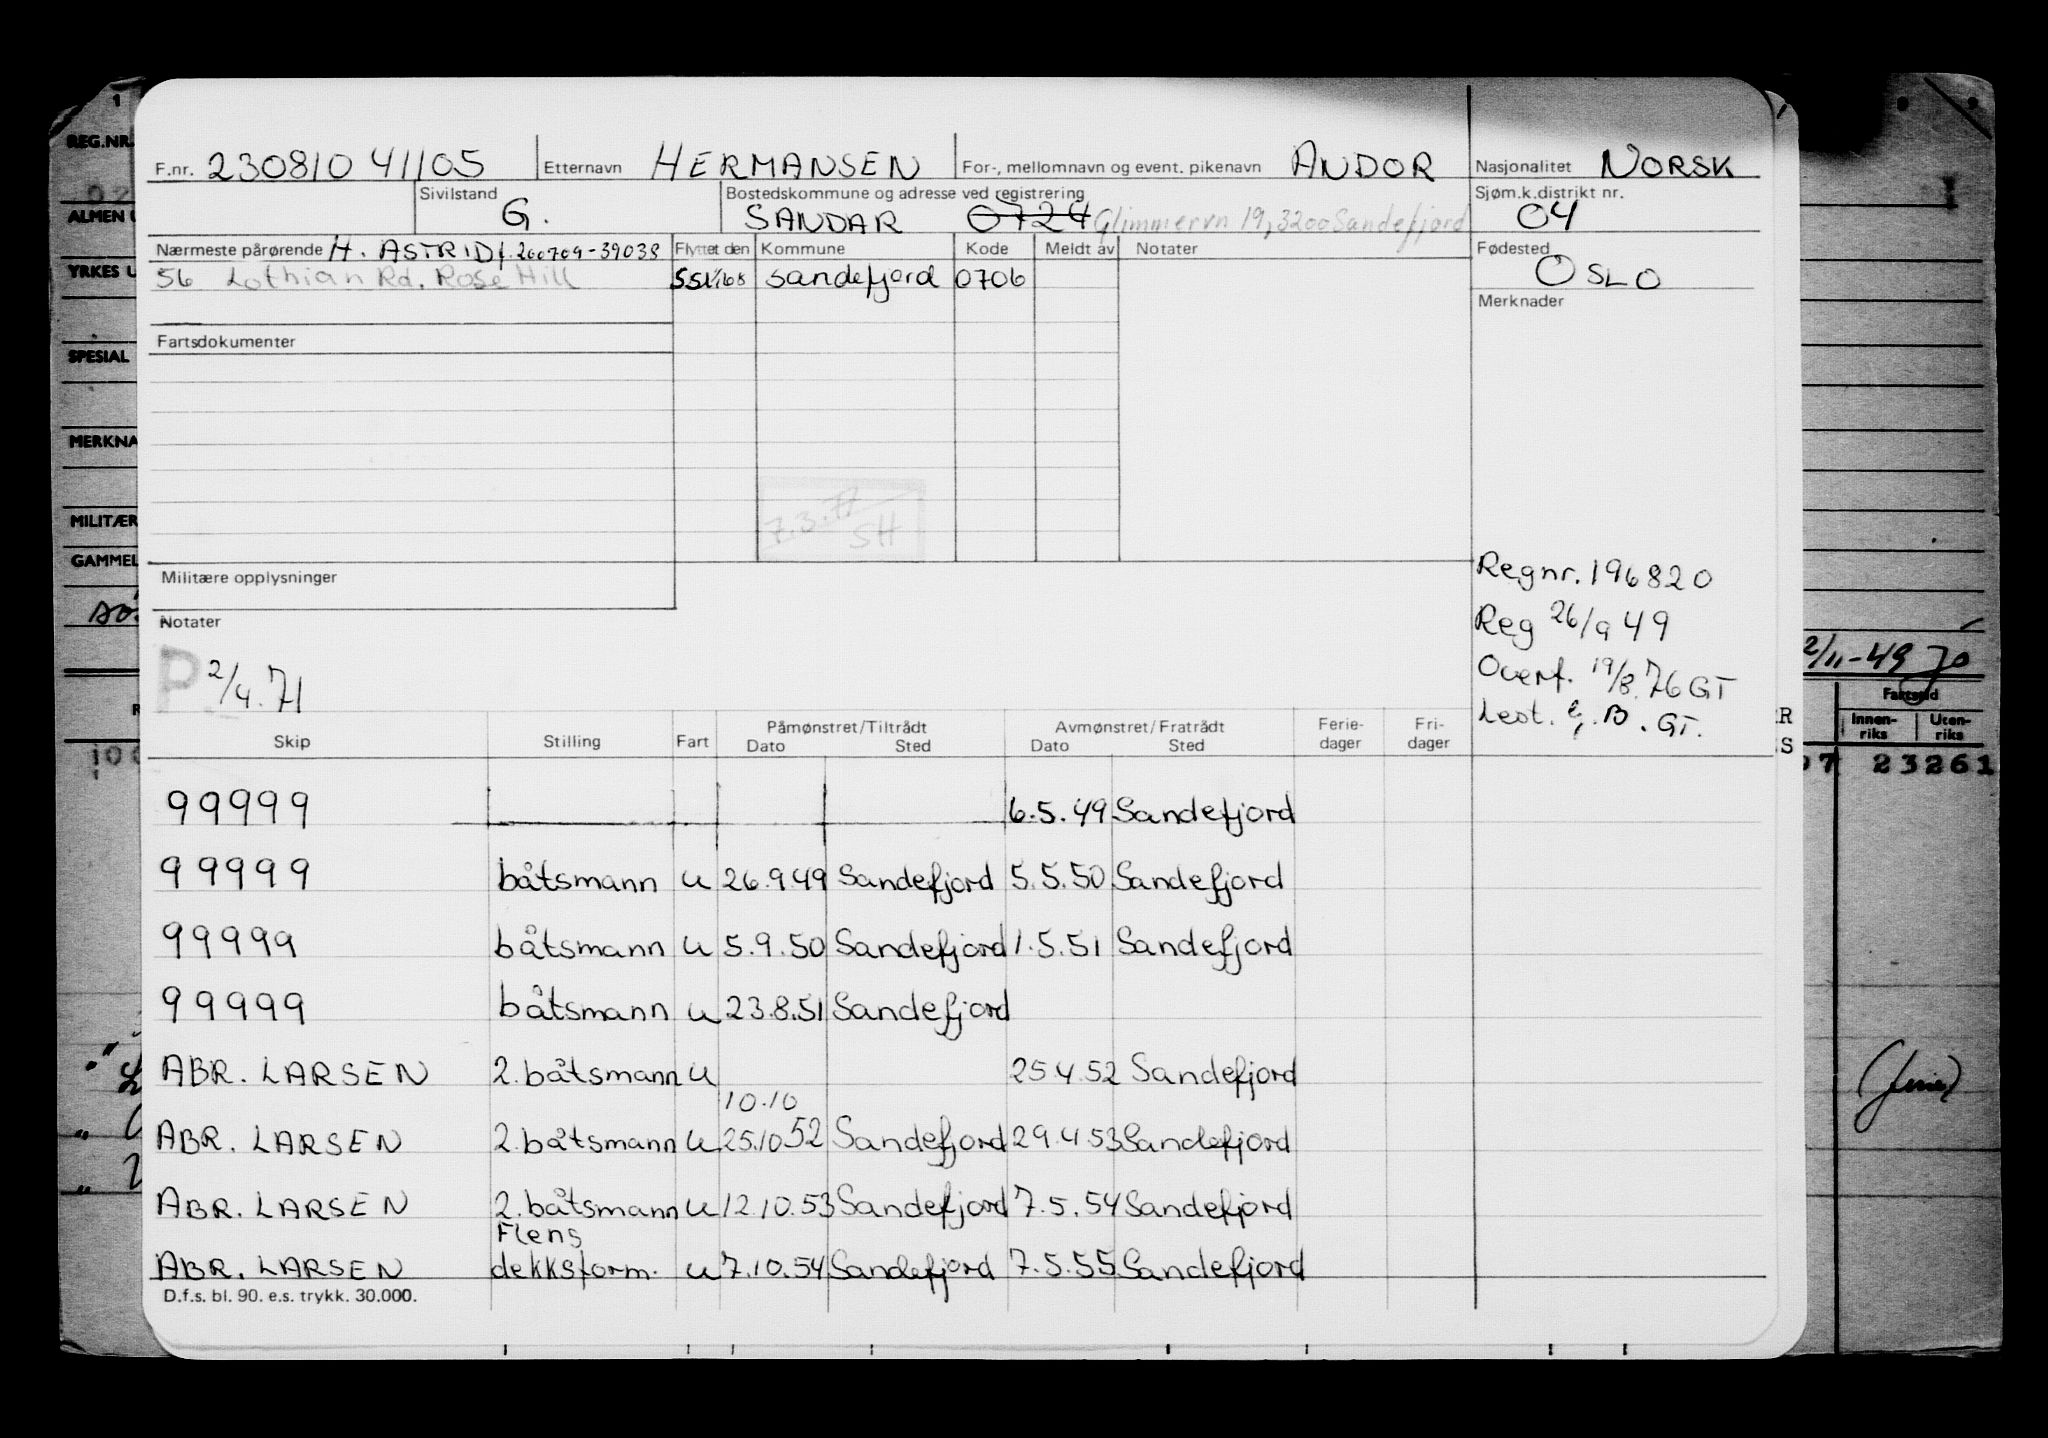 F.nr. 230810 41105 Etternavn HERMANSEN For-, mellomnavn og event. pikenavn ANDOR Nasjonalitet NORSK
Sivilstand G. Bostedskommune og adresse ved registrering SANDAR 0724 Glimmervn 19, 3200 Sandefjord Sjøm.k.distrikt nr. 04
Nærmeste pårørende H. ASTRID f. 200709-39038 Flyttet den Kommune Kode Meldt av Notater Fødested OSLO
56 Lothian Rd. Rose Hill sandefjord 0706
Merknader
Fartsdokumenter
7.3.77
SH
Militære opplysninger
Regnr. 196820
Notater
Reg 26/9 49
P 2/4.71
Overf. 19/8.76 GT
Lest. B. GT.
Skip Stilling Fart Påmønstret/Tiltrådt Dato Sted Avmønstret/Fratrådt Dato Sted Ferie-dager Fri-dager
99999 6.5.49 Sandefjord
99999 båtsmann u 26.9.49 Sandefjord 5.5.50 Sandefjord
99999 båtsmann u 5.9.50 Sandefjord 1.5.51 Sandefjord
99999 båtsmann u 23.8.51 Sandefjord
ABR. LARSEN 2. båtsmann u 25.4.52 Sandefjord
10.10
ABR. LARSEN 2. båtsmann u 25.10 52 Sandefjord 29.4.53 Sandefjord
ABR. LARSEN 2. båtsmann u 12.10.53 Sandefjord 7.5.54 Sandefjord
Flens
ABR. LARSEN dekksform. u 7.10.54 Sandefjord 7.5.55 Sandefjord
D.f.s. bl. 90. e.s. trykk. 30.000.
1
REG.NR.
ALMEN U
YRKES U
SPESIAL
MERKNA
MILITÆR
GAMMEL
2/11-49
Fartstid
Innen-riks Uten-riks
23261